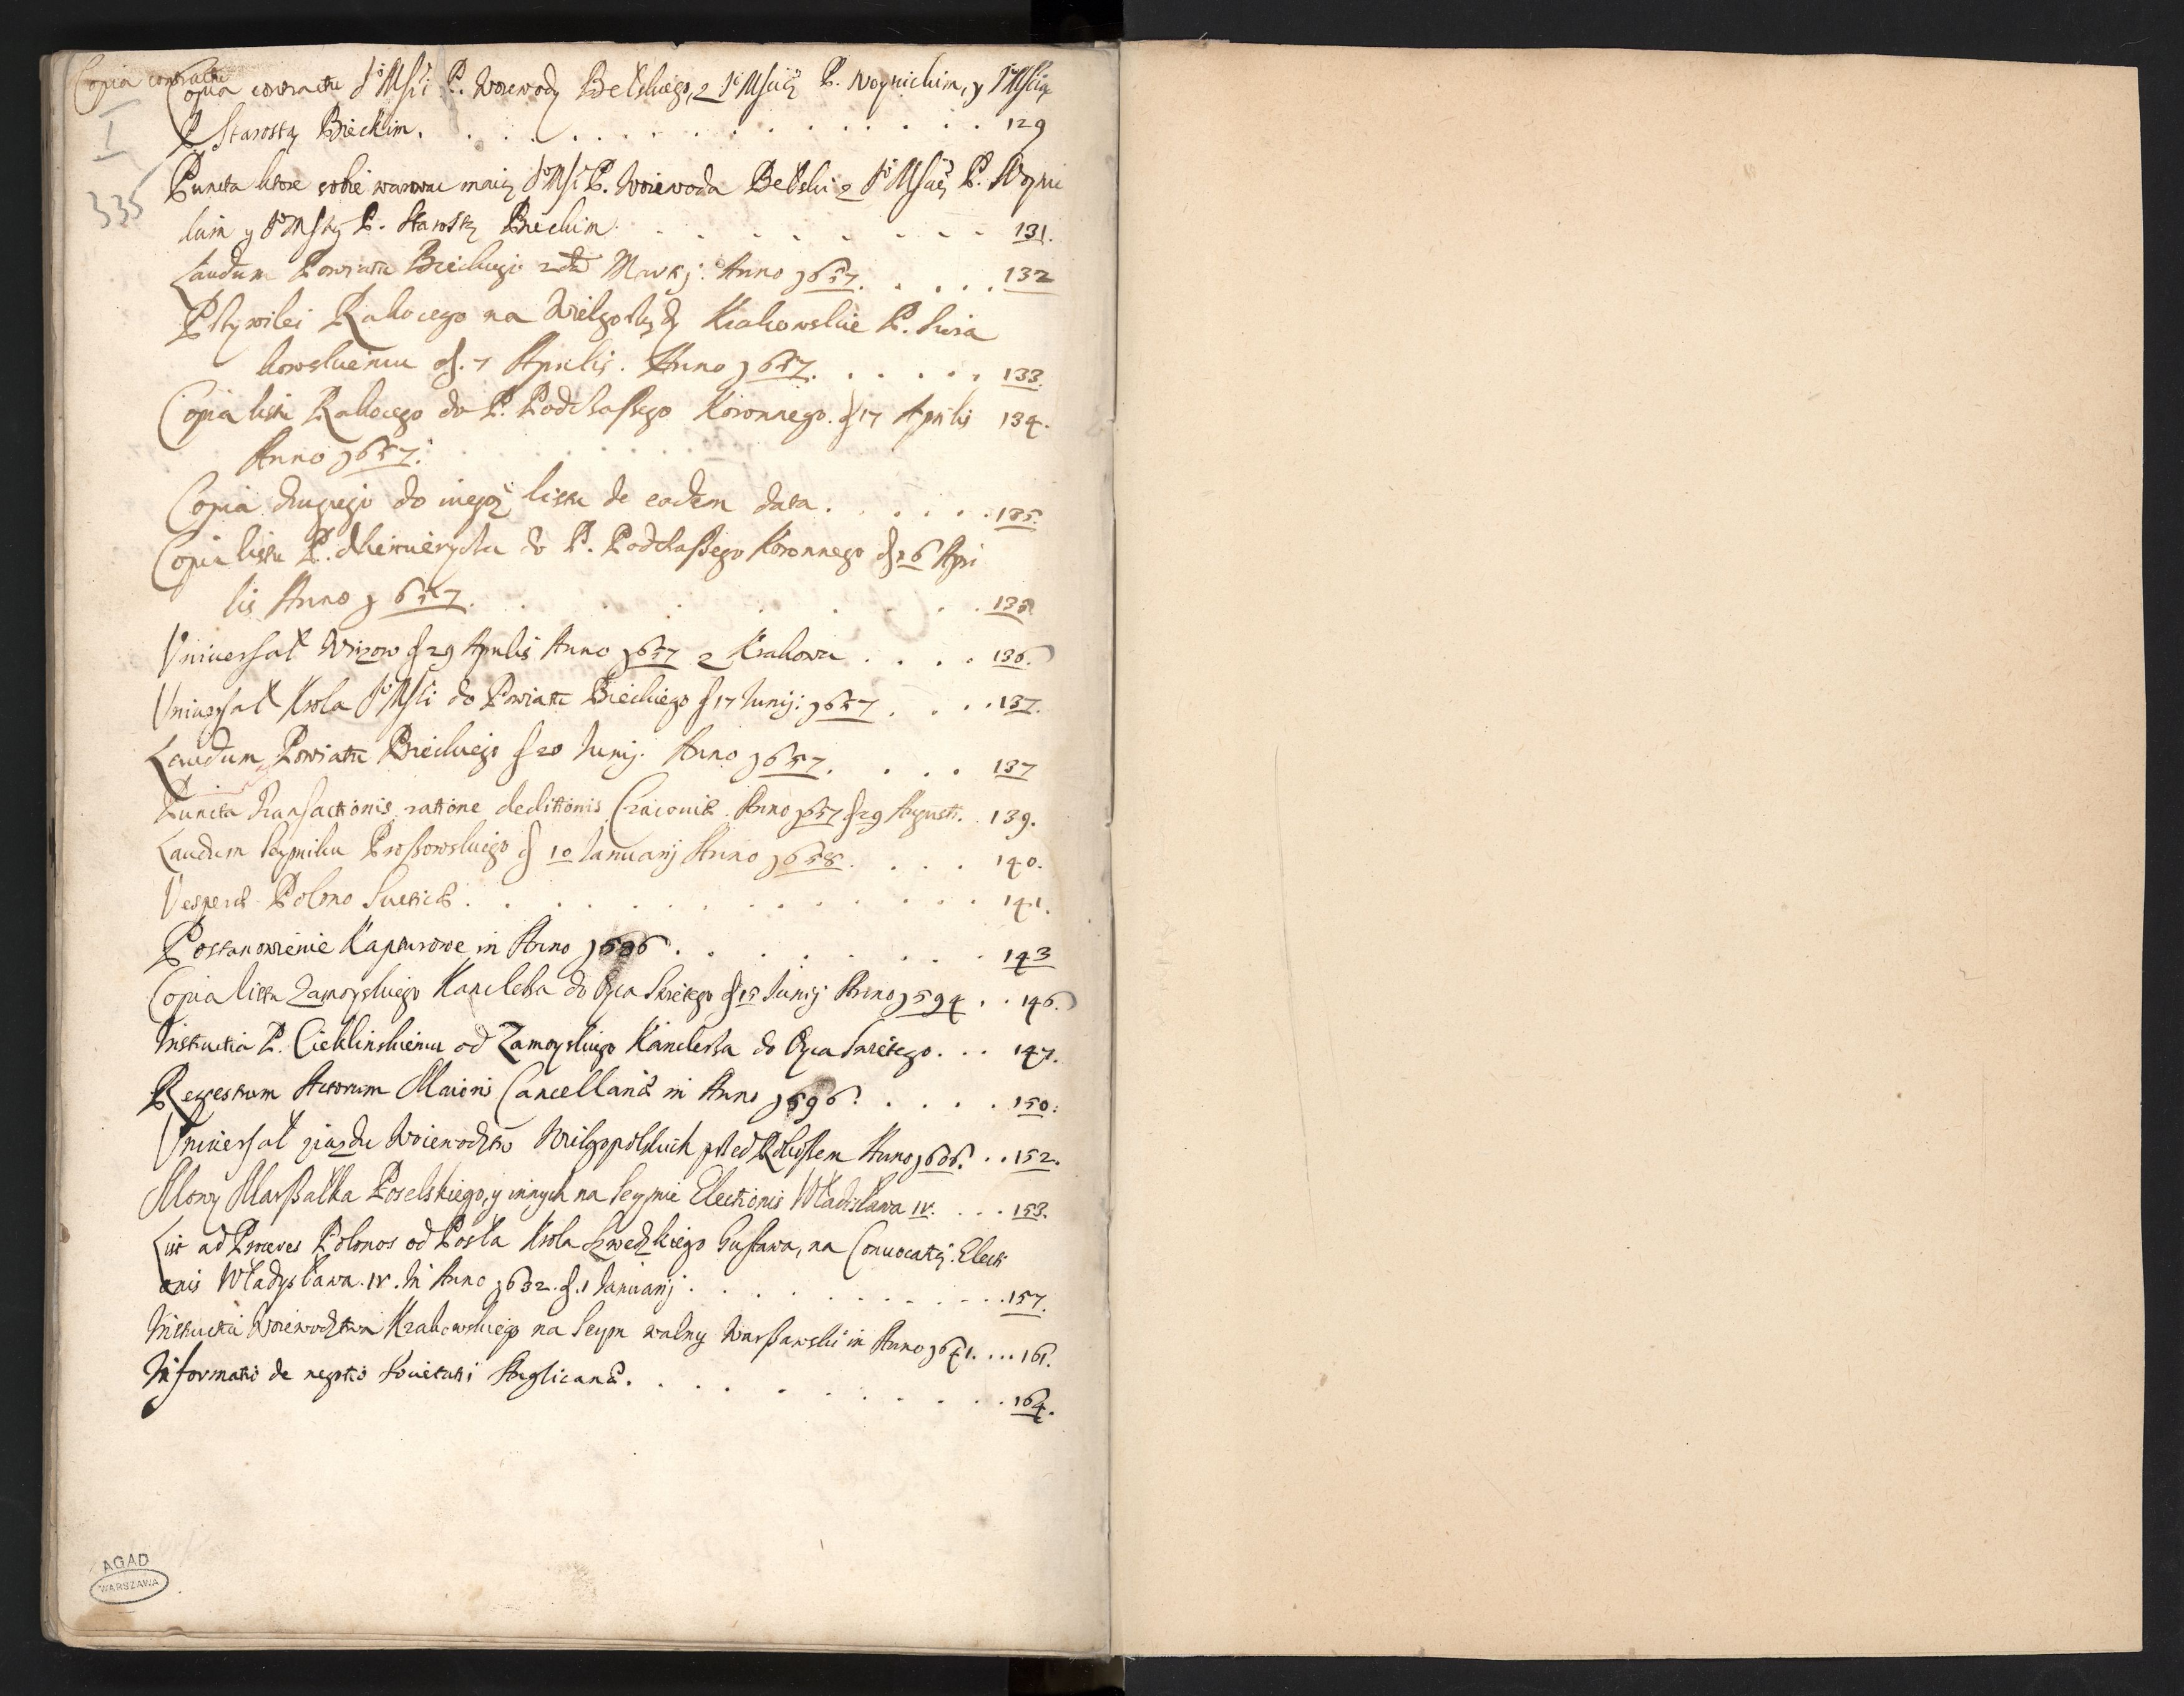 Copia contractu
Copia contractu JoMści P. Woiewody Bełskiego, z JoMścią P. Woynickim, y JoMścią
P. Starostą Bieckim. 129
I
335
Puncta ktore sobie warowac maią JoMść P. Woiewoda Bełski z JoMścią P. Woyni
kim y JoMścią P. Starostą Bieckim 131.
Laudum Powiatu Bieckiego Martij. Anno 1657. 132
Przywilei Rakocego na Wielgorządy Krakowskie P. Swia
kowskiemu d. 7 Aprilis. Anno 1657. 133.
Copia listu Rakocego do P. Podczaszego Koronnego. d 17 Aprilis 134.
Anno 1657.
Copia drugiego do niegoz listu de eadem data. 135.
Copia listu P. Chemierycha do P. Podczaszego Koronnego d 26 Apri
lis Anno 1657. 135
Vniuersał Wirzow d 29 Aprilis Anno 1657 z Krakowa 136.
Vniuersał Krola JoMści do Powiatu Bieckiego d 17 Iunij: 1657 137.
Laudum Powiatu Bieckiego d 20 Iunij. Anno 1657. 137
Puncta transactionis ratione deditionis Cracouiæ. Anno 1657 d 29 Augusti. 139.
Laudum Seymiku Proszowskiego d 10 Ianuarij Anno 1658. 140.
Vesperæ Polono Sueticæ. 141.
Postanowienie Kapturowe in Anno 1586. 143
Copia listu Zamoyskiego Kanclerza do Oyca Swiętego d 15 Iunij Anno 1594. 146.
Instructia P. Cieklinskiemu od Zamoyskiego Kanclerza do Oyca Swiętego. 147.
Regestrum Actorum Maioris Cancellariæ in Anno 1596. 150.
Vniuersał ziazdu Woiewodztw Wielgopolskich przed Rokoszem Anno 1606. 152.
Mowy Marszałka Poselskiego, y innych na Seymie Electionis Władisława IV. 153.
List ad Proceres Polonos od Posła Krola Szwedzkiego Gustawa, na Conuocatij. Electi
onis Władysława. IV. In Anno 1632. d. 1 Ianuarij. 157.
Instructia Woiewodztwa Krakowskiego na Seym walny Warszawski in Anno 1641. 161.
Informatio de negotio Societati Anglicanæ. 164.
AGAD
WARSZAWA